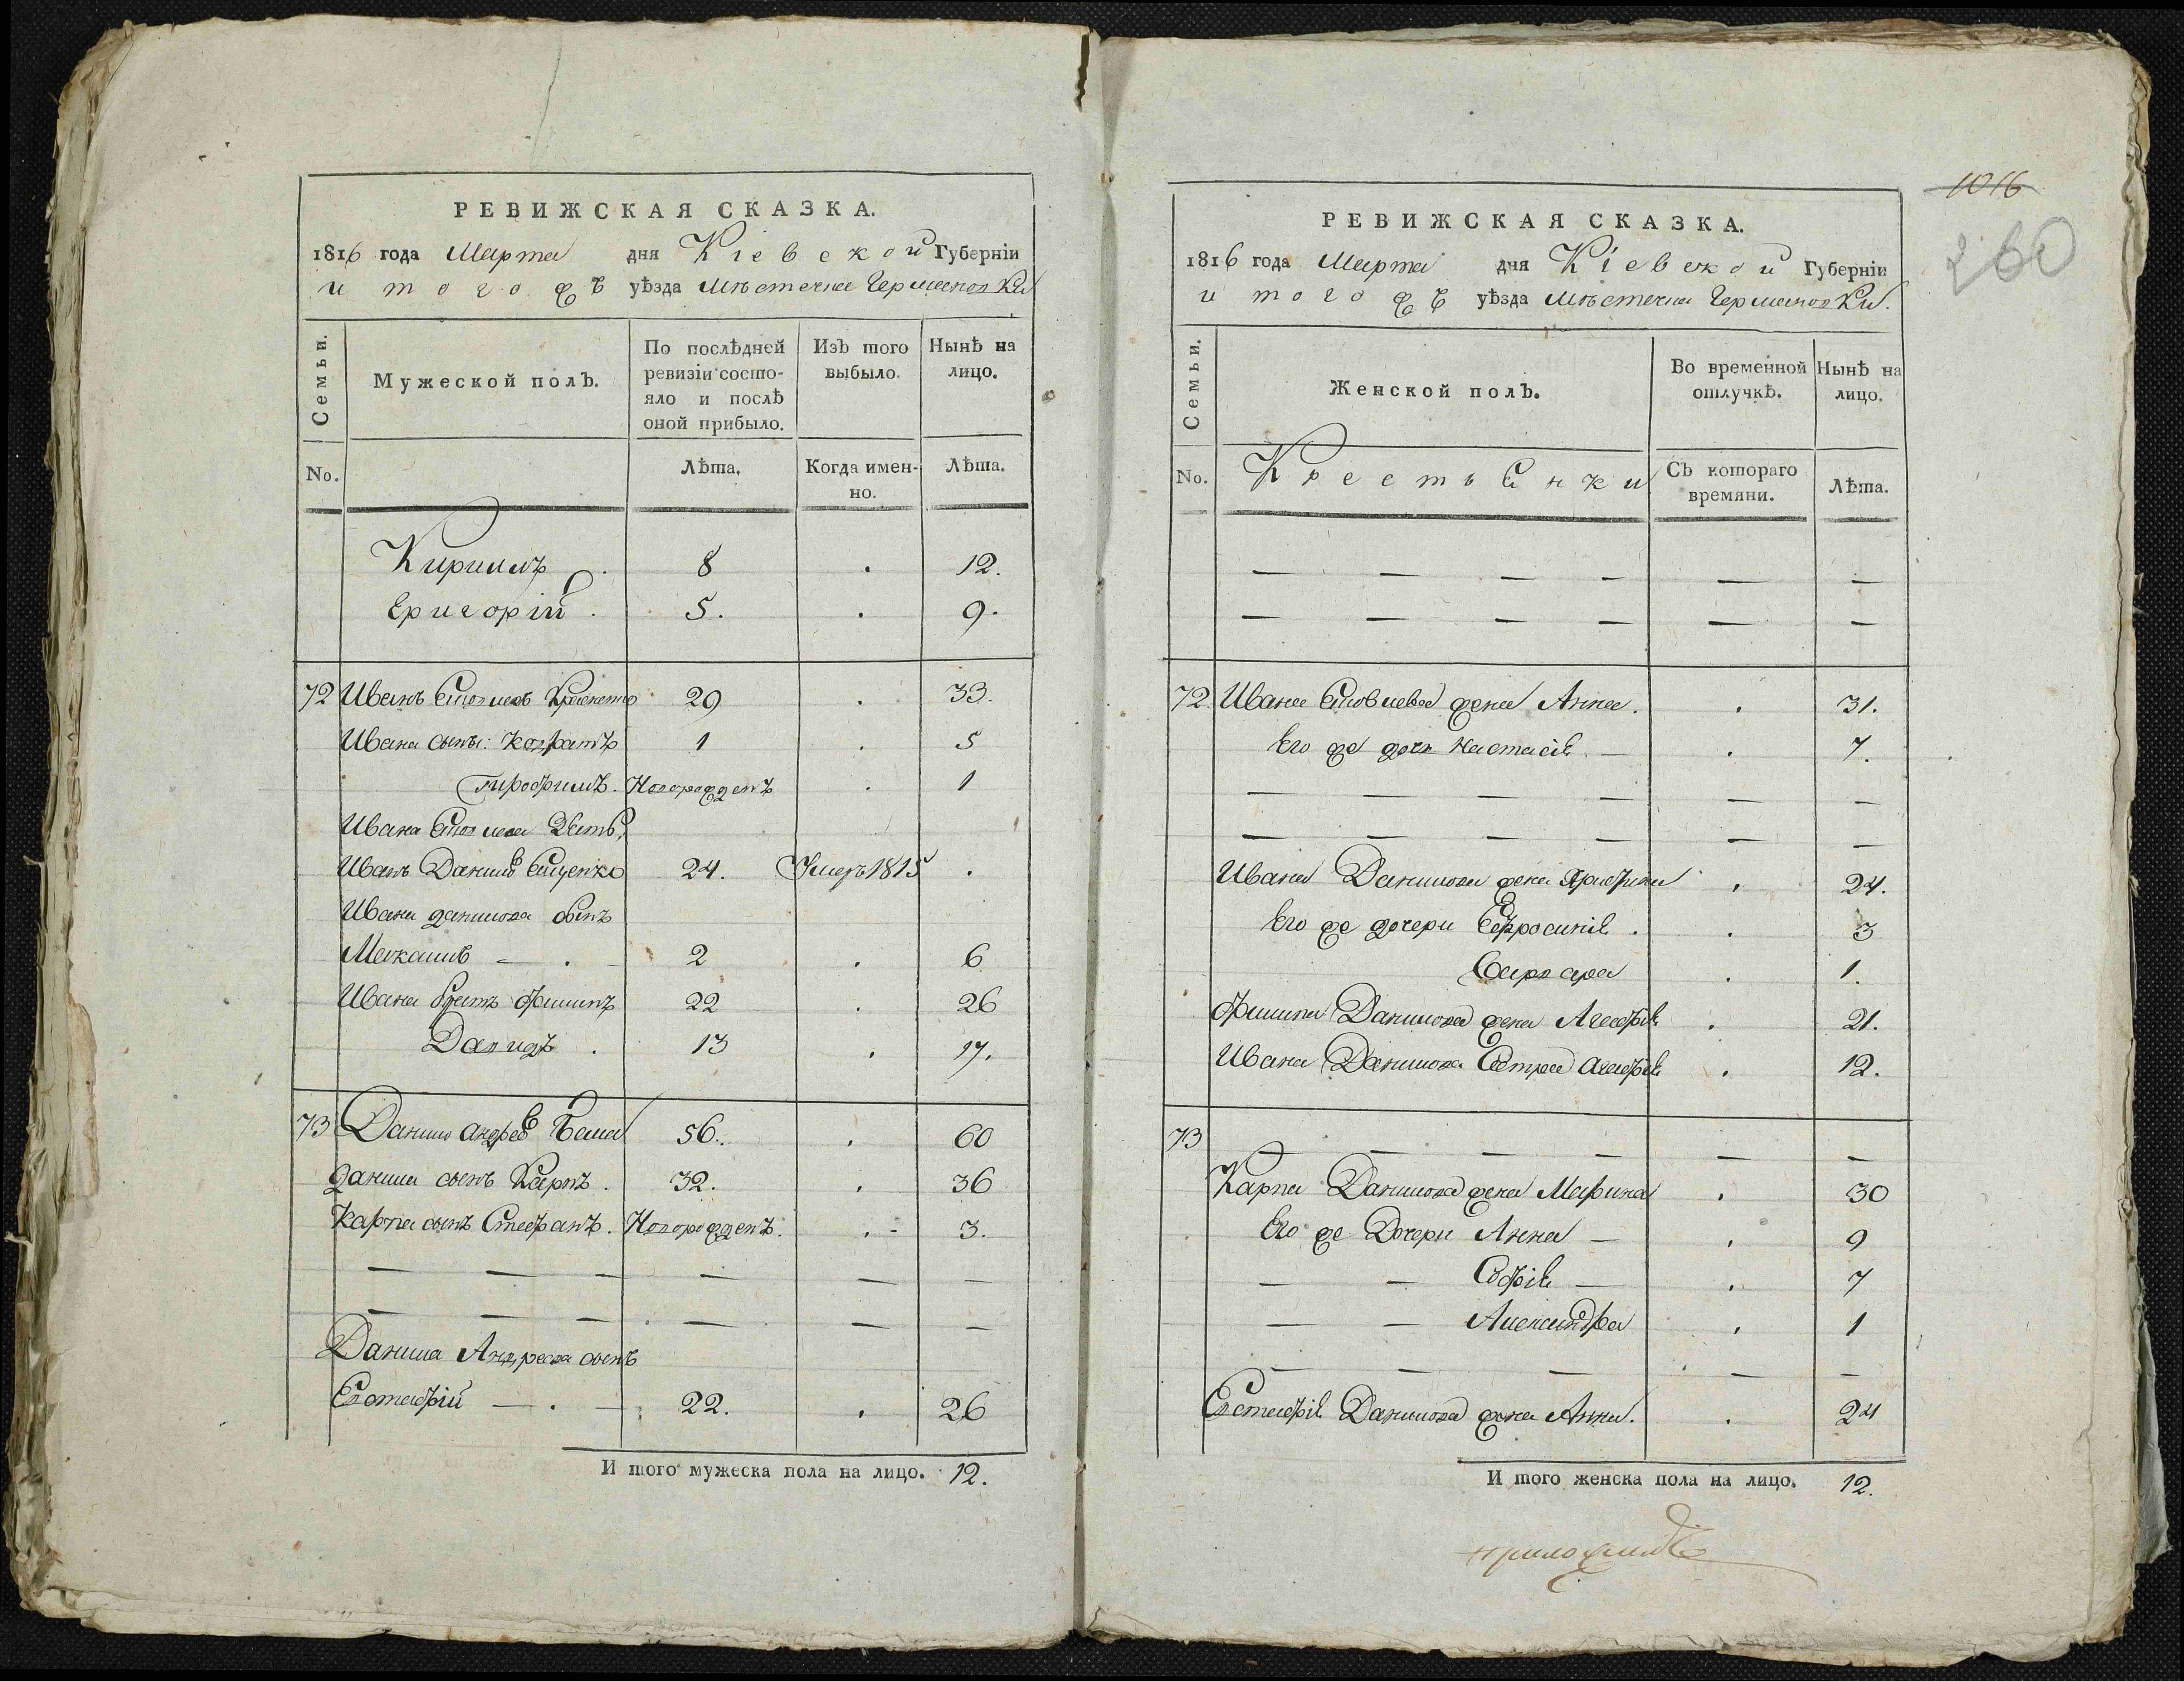 РЕВИЖСКАЯ СКАЗКА.
1816 года Марта дня Кіевской Губерніи
и того жъ уѣзда мѣстечка Германовки
Семьи.
Мужеской полъ.
По послѣдней ревизіи состояло и послѣ оной прибыло.
Изъ того выбыло.
Нынѣ на лицо.
No.
Лѣта.
Когда именно.
Лѣта.
Кирилъ . 8 . 12.
Григорій . 5. . 9.
72 Иванъ 29 . 33.
Ивана сыны: Кондратъ 1 . 5
Трофимъ. Новорожденъ . 1
Ивана
Иванъ Данилов 24. Умеръ 1815 .
Ивана Данилова сынъ
2 . 6
Ивана братъ Филипъ 22 . 26
Давидъ . 13 . 17.
73 Данило Андреев 56. . 60
Данила сынъ Карпъ . 32. . 36
Карпа сынъ Стефанъ . Новорожденъ. . - 3.
— — — — — —
— — — — — —
Данила Андреева сынъ
Евстафій — . — 22. . 26
И того мужеска пола на лицо. 12.
1016
260
РЕВИЖСКАЯ СКАЗКА.
1816 года Марта дня Кіевской Губерніи
и того жъ уѣзда мѣстечка Германовки.
Семьи.
Женской полъ.
Во временной отлучкѣ.
Нынѣ на лицо.
No.
Крестьянки
Съ котораго времяни.
Лѣта.
— — — — — —
— — — — — —
72. Ивана жена Анна. . 31.
Его же дочь Настасія — . 7.
— — — — — —
— — — — — —
Ивана Данилова жена . 24.
Его же дочери Ефросинія . . 3
Варвара . 1.
Филипа Данилова жена Агафія . 21.
Ивана Данилова сестра Агафія . 12.
73
— — — — — —
Карпа Данилова жена Марина . 30
Его же Дочери Анна — . 9
— — Софія — . 7
— — Александра . 1
— — — — —
Евстафія Данилова жена Анна. . 24
И того женска пола на лицо. 12.